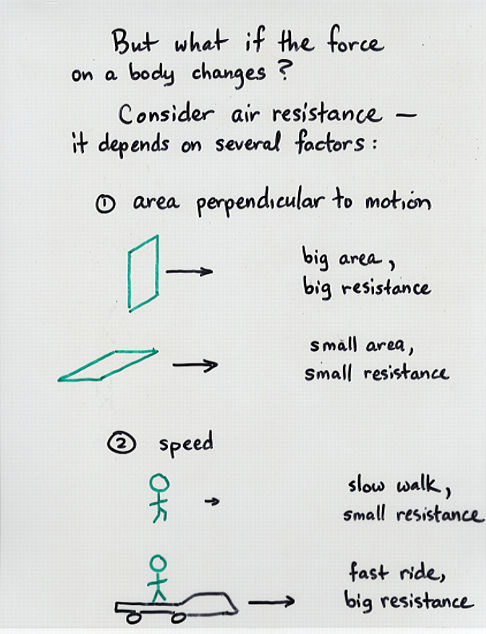 But what if the force
on a body changes?
Consider air resistance —
it depends on several factors:
① area perpendicular to motion
big area,
big resistance
small area,
small resistance
② speed
slow walk,
small resistance
fast ride,
big resistance